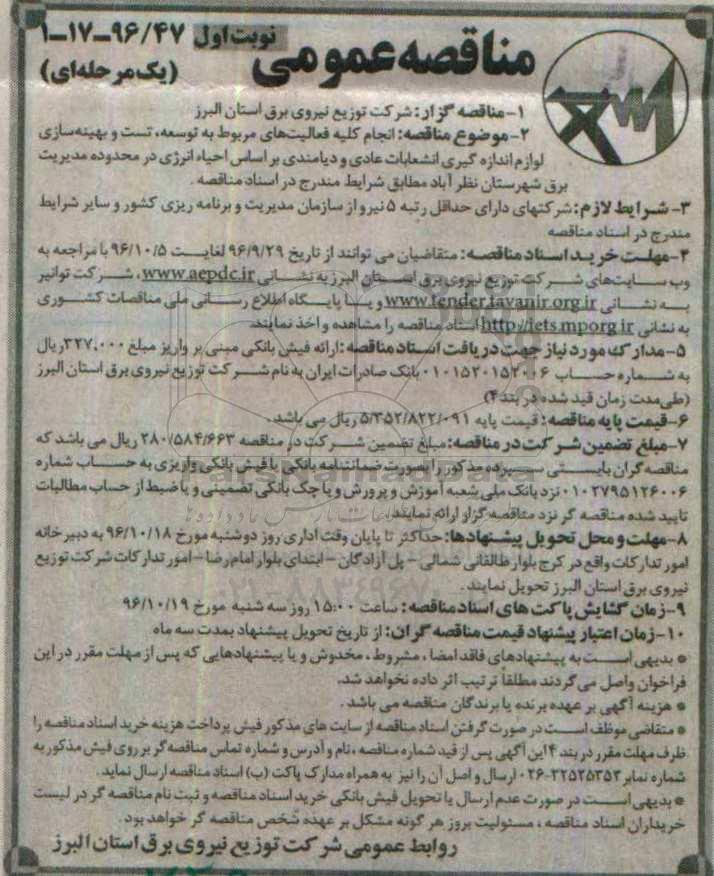 مناقصه عمومی نوبت اول ۹۶/۴۷-۱۷-۱
(یک مرحله‌ای)
۱-مناقصه گزار: شرکت توزیع نیروی برق استان البرز
۲-موضوع مناقصه: انجام کلیه فعالیت‌های مربوط به توسعه، تست و بهینه‌سازی
لوازم اندازه گیری انشعابات عادی و دیماندی بر اساس احیاء انرژی در محدوده مدیریت
برق شهرستان نظر آباد مطابق شرایط مندرج در اسناد مناقصه.
۳- شرایط لازم: شرکتهای دارای حداقل رتبه ۵ نیرو از سازمان مدیریت و برنامه ریزی کشور و سایر شرایط
مندرج در اسناد مناقصه
۴-مهلت خرید اسناد مناقصه: متقاضیان می توانند از تاریخ ۹۶/۹/۲۹ لغایت ۹۶/۱۰/۵ با مراجعه به
وب سایت‌های شرکت توزیع نیروی برق استان البرز به نشانی www.aepdc.ir، شرکت توانیر
به نشانی www.tender.tavanir.org.ir و یا پایگاه اطلاع رسانی ملی مناقصات کشوری
به نشانی http://iets.mporg.ir اسناد مناقصه را مشاهده و اخذ نمایند.
۵-مدارک مورد نیاز جهت دریافت اسناد مناقصه: ارائه فیش بانکی مبنی بر واریز مبلغ ۳۲۷,۰۰۰ ریال
به شماره حساب ۰۱۰۱۵۲۰۱۵۲۰۰۶ بانک صادرات ایران به نام شرکت توزیع نیروی برق استان البرز
(طی مدت زمان قید شده در بند ۴)
۶-قیمت پایه مناقصه: قیمت پایه ۵/۳۵۲/۸۲۲/۰۹۱ ریال می باشد.
۷-مبلغ تضمین شرکت در مناقصه: مبلغ تضمین شرکت در مناقصه ۲۸۰/۵۸۴/۶۶۳ ریال می باشد که
مناقصه گران بایستی سپرده مذکور را بصورت ضمانتنامه بانکی یا فیش بانکی واریزی به حساب شماره
۰۱۰۲۷۹۵۱۲۶۰۰۶ نزد بانک ملی شعبه آموزش و پرورش و یا چک بانکی تضمینی و یا ضبط از حساب مطالبات
تایید شده مناقصه گر نزد مناقصه گزار ارائه نمایند.
۸-مهلت و محل تحویل پیشنهادها: حداکثر تا پایان وقت اداری روز دوشنبه مورخ ۹۶/۱۰/۱۸ به دبیرخانه
امور تدارکات واقع در کرج بلوار طالقانی شمالی - پل آزادگان - ابتدای بلوار امام رضا - امور تدارکات شرکت توزیع
نیروی برق استان البرز تحویل نمایند.
۹-زمان گشایش پاکت های اسناد مناقصه: ساعت ۱۵:۰۰ روز سه شنبه مورخ ۹۶/۱۰/۱۹
۱۰-زمان اعتبار پیشنهاد قیمت مناقصه گران: از تاریخ تحویل پیشنهاد بمدت سه ماه
● بدیهی است به پیشنهادهای فاقد امضا، مشروط، مخدوش و یا پیشنهادهایی که پس از مهلت مقرر در این
فراخوان واصل می گردند مطلقاً ترتیب اثر داده نخواهد شد.
● هزینه آگهی بر عهده برنده یا برندگان مناقصه می باشد.
● متقاضی موظف است در صورت گرفتن اسناد مناقصه از سایت های مذکور فیش پرداخت هزینه خرید اسناد مناقصه را
ظرف مهلت مقرر در بند ۴ این آگهی پس از قید شماره مناقصه، نام و آدرس و شماره تماس مناقصه گر بر روی فیش مذکور به
شماره نمابر ۳۲۵۲۵۳۵۲-۰۲۶ ارسال و اصل آن را نیز به همراه مدارک پاکت (ب) اسناد مناقصه ارسال نماید.
● بدیهی است در صورت عدم ارسال یا تحویل فیش بانکی خرید اسناد مناقصه و ثبت نام مناقصه گر در لیست
خریداران اسناد مناقصه، مسئولیت بروز هر گونه مشکل بر عهده شخص مناقصه گر خواهد بود.
روابط عمومی شرکت توزیع نیروی برق استان البرز